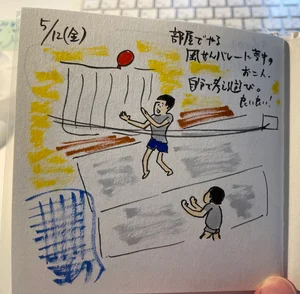 5/12(金)
部屋でやる
風せんバレーに夢中の
お二人。
自分で考えた遊び。
良い良い!